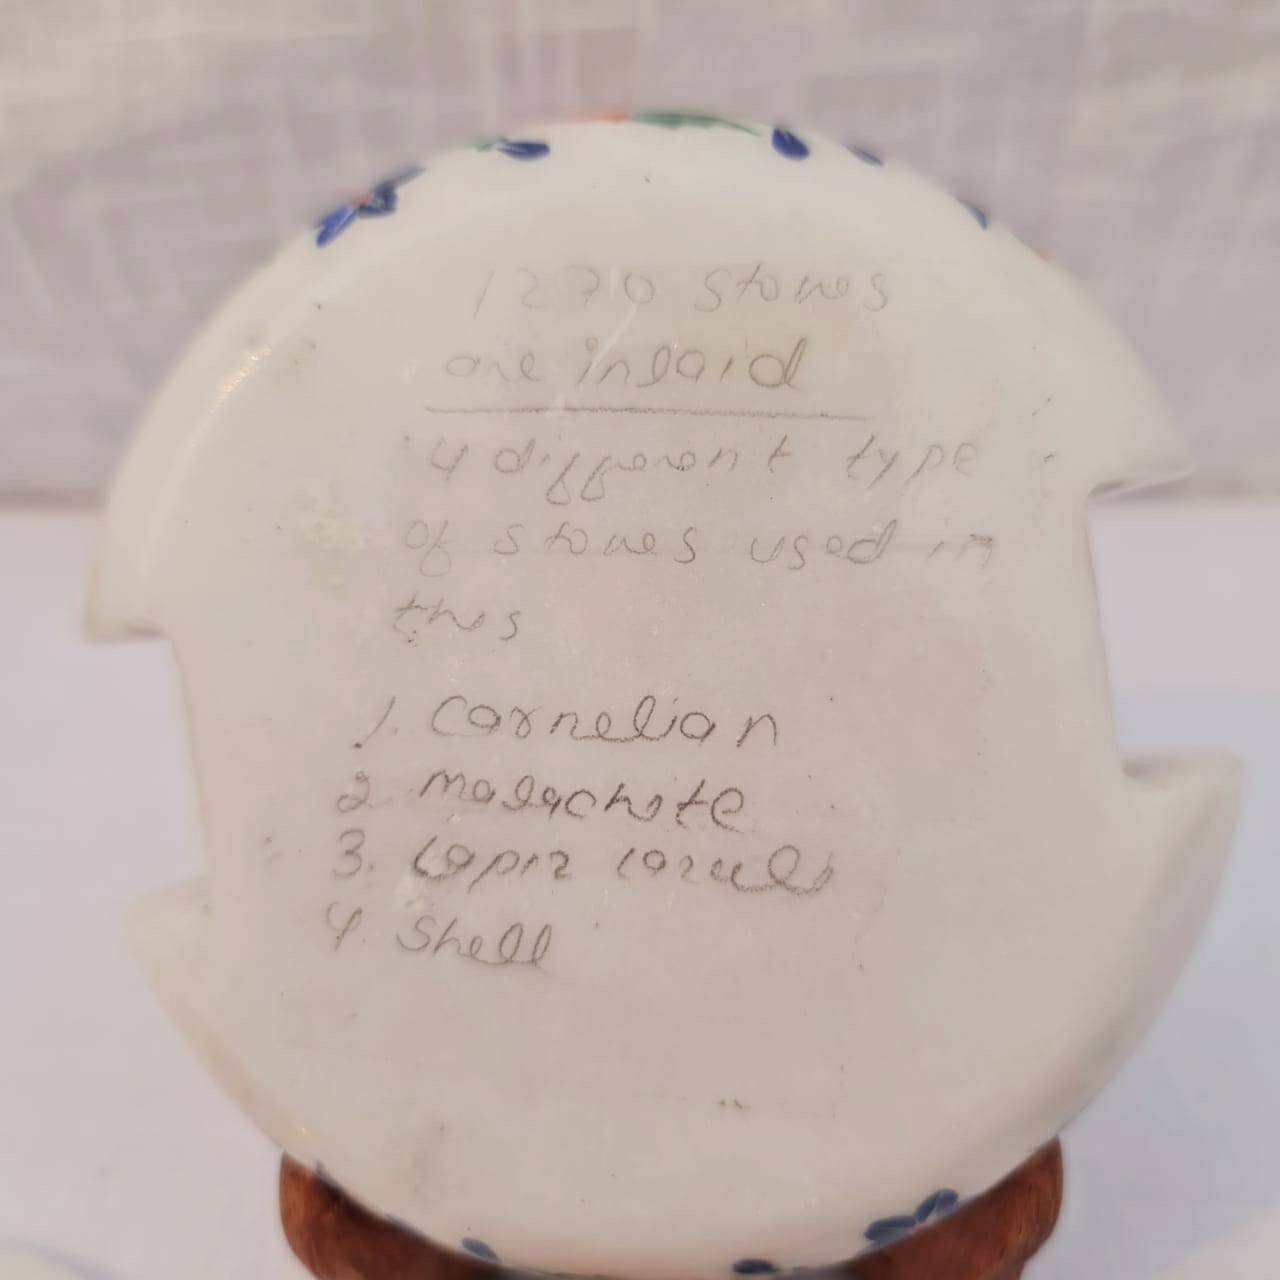 1270 stones
are inlaid
4 different type
of stones used in
this
1. Carnelian
2. malachite
3. Lapiz lazuli
4. Shell